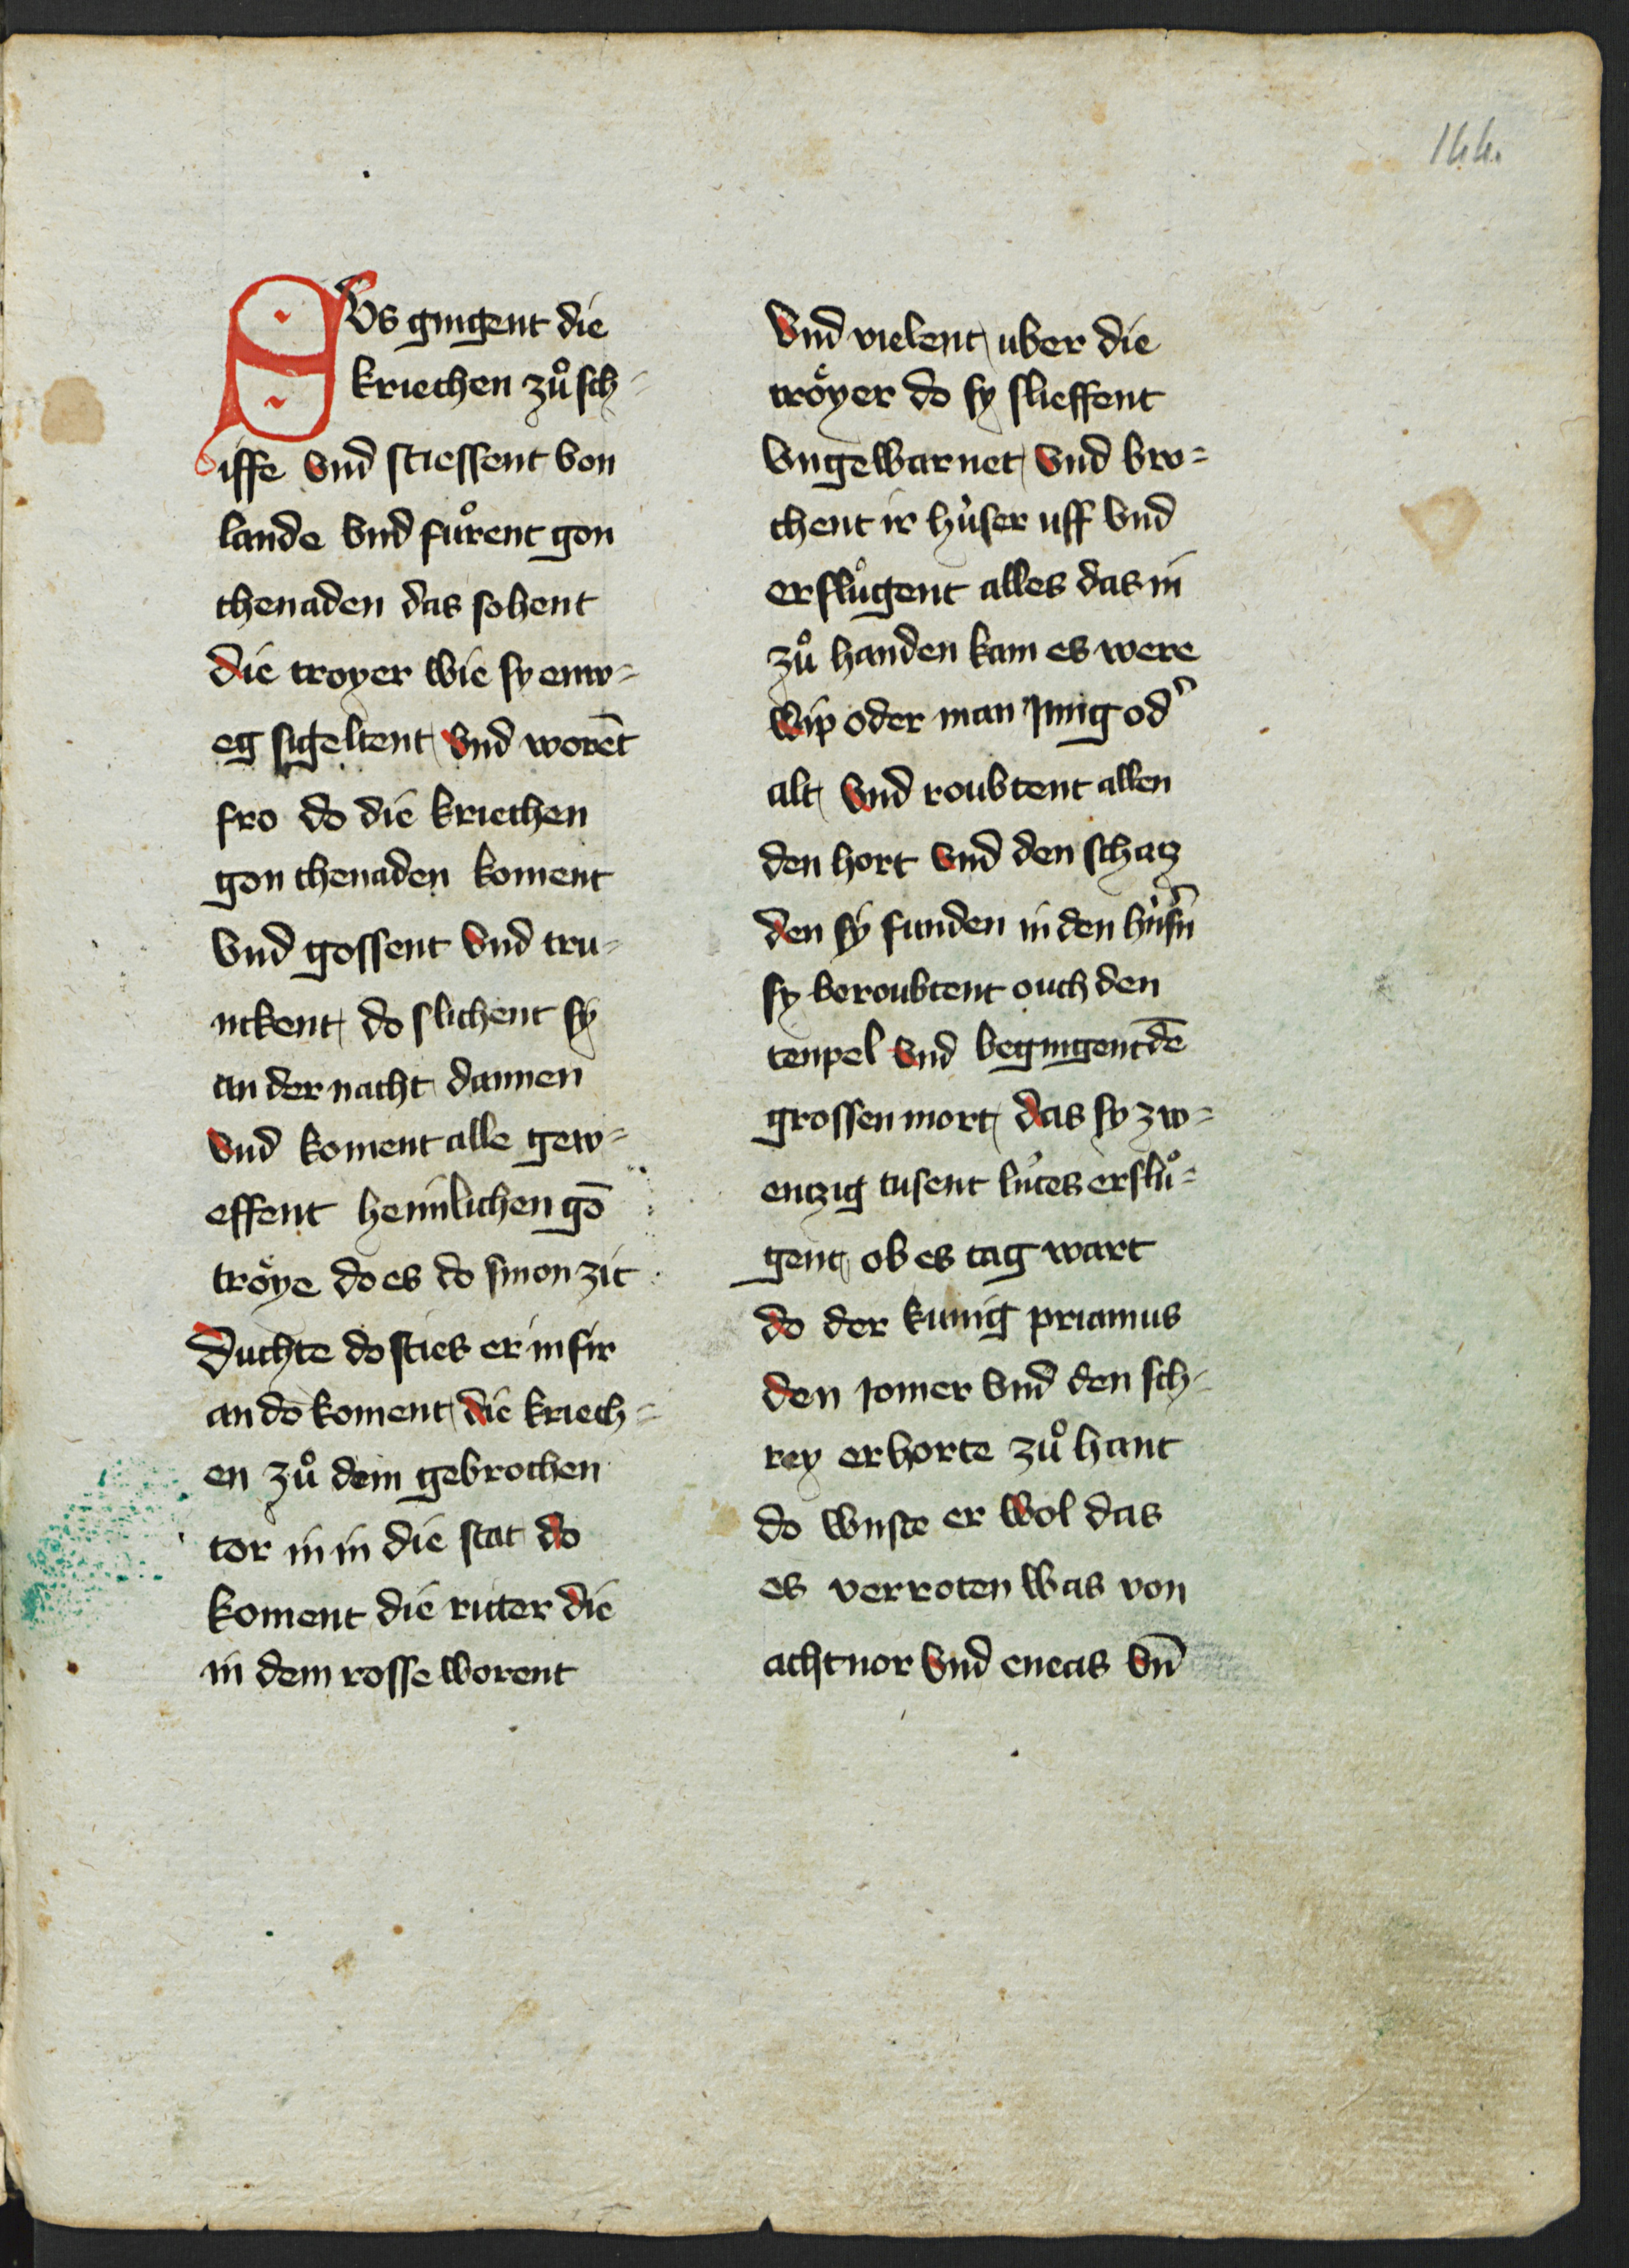 144.
SVs gingent die
kriechen zuͦ sch-
iffe vnd stiessent von
lande vnd fuͦrent gon
thenaden das sohent
die troyer wie sy enw-
eg sigeltent vnd worēt
fro do die kriechen
gon thenaden koment
vnd gossent vnd tru-
nckent do slichent sy
an der nacht dannen
vnd koment alle gew-
effent heimlichen gō
troͤye do es do sinon zit
Duchte do sties er in fir
an do koment die kriech-
en zuͦ dem gebrochen
tor in in die stat do
koment die ritter die
in dem rosse worent
vnd vielent uber die
troͤyer do sy slieffent
vngewarnet vnd bro-
chent ir huͤser uff vnd
ersluͦgent alles das in
zuͦ handen kam es were
wip oder man Jung od'
alt vnd roubtent allen
den hort vnd den schatz
den sy funden in den huͤs'n
sy beroubtent ouch den
tenpel vnd begingent dē
grossen mort das sy zw-
entzig tusent luͤtes ersluͦ-
gent ob es tag wart
do der kunig priamus
den Jomer vnd den sch-
rey erhorte zuͦ hant
do wuste er wol das
es verroten was von
achtnor vnd eneas vn̄